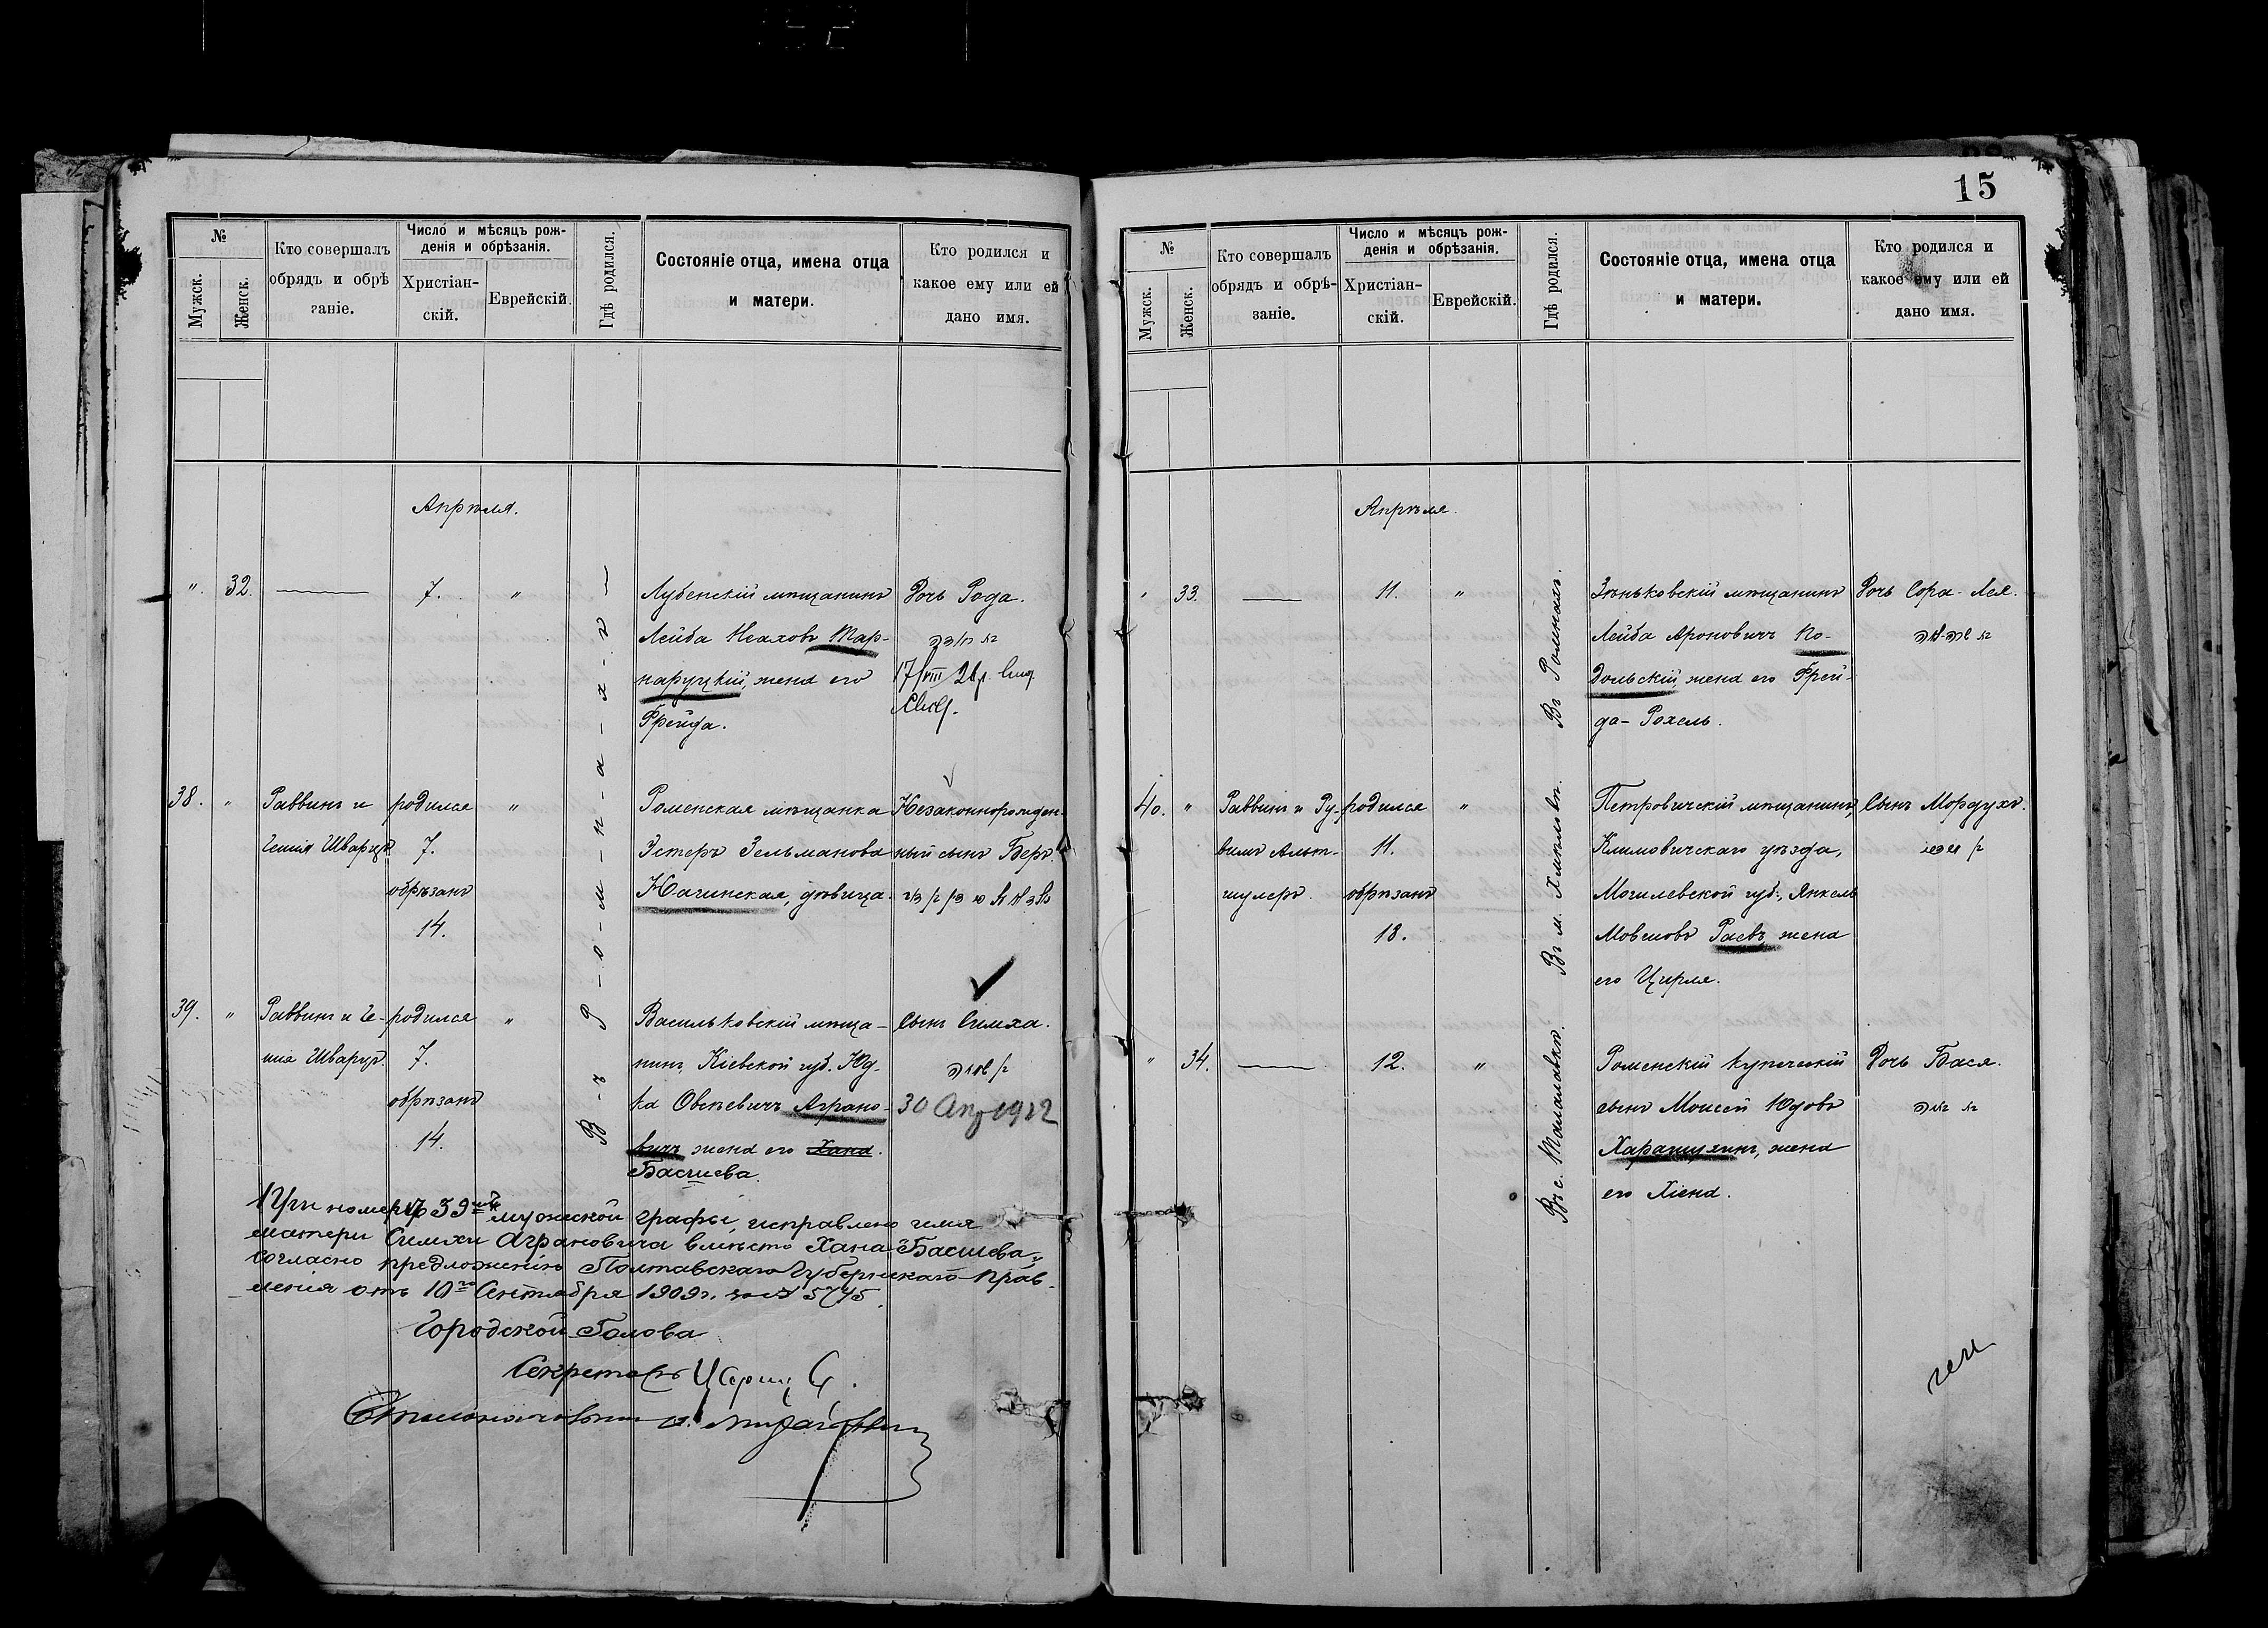 №
Мужск.
Женск.
Кто совершалъ
обрядъ и обрѣ
заніе.
Число и мѣсяцъ рож-
денія и обрѣзанія.
Христіан-
скій.
Еврейскій.
Гдѣ родился.
Состояніе отца, имена отца
и матери.
Кто родился и
какое ему или ей
дано имя.
Апрѣля.
В-ъ Р-о-м-н-а-х-ъ
" 32. 7. "
Лубенскій мѣщанинъ
Лейба
наруцкій, жена его
Фрейда.
Дочь Рода.
38. "
Раввинъ и
Шварцъ
родился
7.
обрѣзанъ
14.
"
Роменская мѣщанка
Эстеръ Зельманова
дѣвица.
Незаконнорожден-
ный сынъ Беръ.
39. "
Раввинъ и
Шварцъ.
родился
7.
обрѣзанъ
14.
"
Васильковскій мѣща-
нинъ, Кіевской губ. Юд-
ка Овсѣевичъ Аграно-
вичъ жена его Хана.
Басшева.
Сынъ Симха.
30 Апр 1912
При номерѣ 39 мужской графы, исправлено имя
матери Симхи Аграновича вмѣсто Хана "Басшева"
согласно предложенію Полтавскаго Губернскаго Прав-
ленія отъ 10го Сентября 1909г. за № 5775.
Городской Голова
Секретарь
15
№
Мужск.
Женск.
Кто совершалъ
обрядъ и обрѣ-
заніе.
Число и мѣсяцъ рож-
денія и обрѣзанія.
Христіан-
скій.
Еврейскій.
Гдѣ родился.
Состояніе отца, имена отца
и матери.
Кто родился и
какое ему или ей
дано имя.
Апрѣля.
" 33. 11. "
Въ Ромнахъ.
Зѣньковскій мѣщанинъ
Лейба Ароновичъ По-
дольскій жена его Фрей-
да-Рохель.
Дочь Сора-Лея.
40. "
Раввинъ и Ру-
вимъ Альт-
шулеръ.
родился
11.
обрѣзанъ
18.
"
Въ м. Хмѣловѣ.
Петровичскій мѣщанинъ,
Климовичскаго уѣзда,
Могилевской губ., Янкель
Мовшовъ Раевъ жена
его Цирля.
Сынъ Мордухъ.
" 34. 12. "
Въ с. Талалаевкѣ.
Роменскій купеческій
сынъ Моисей Юдовъ
жена
его Хіена.
Дочь Бася.